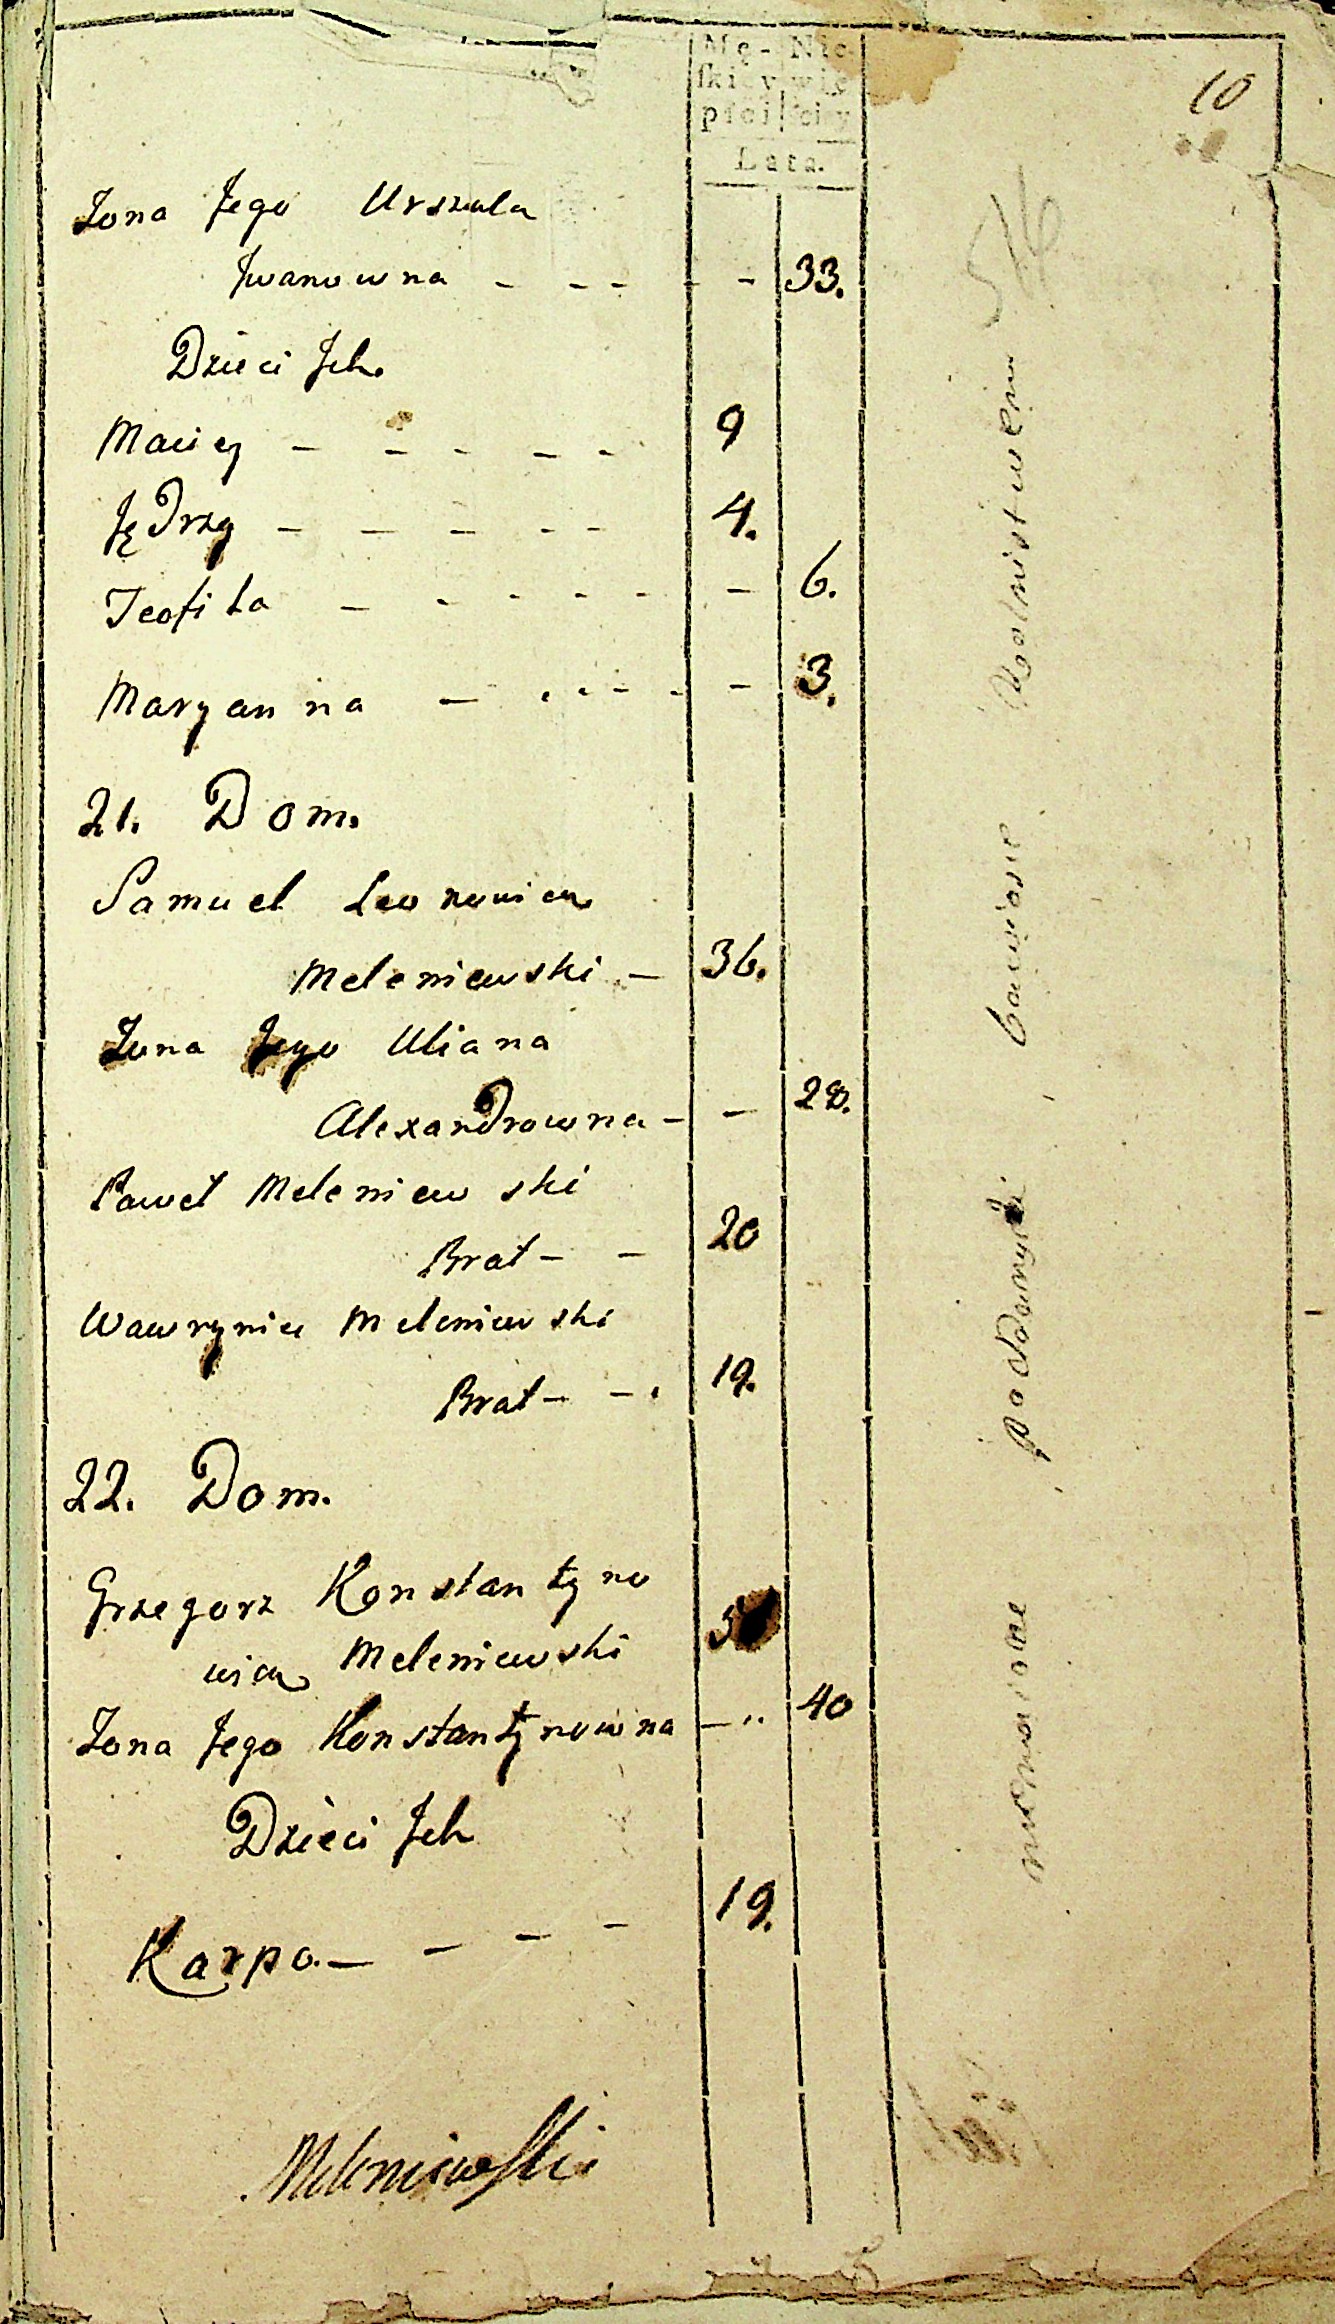 Mę- Nie
skiey wie
płci ściey
Lata.
10
Żona Jego Urszula
Jwanowna - - - - - 33.
Dzieci Jch.
Maciey - - - - - 9
Jędrzy - - - - - 4.
Teofila - - - - - - 6.
Maryanna - - - - - - 3.
21. Dom.
Samuel Leonowicz
Meleniewski - 36.
Żona Jego Uliana
Alexandrowna - - 28.
Paweł Meleniewski
Brat - - 20
Wawryniec Meleniewski
Brat - - 19.
22. Dom.
Grzegorz Konstantyno
wicz Meleniewski
Żona Jego Konstantynowna - 40
Dzieci Jch
Karpo - - - - 19.
Meleniewski
poddanych bawiące Rolnistwem